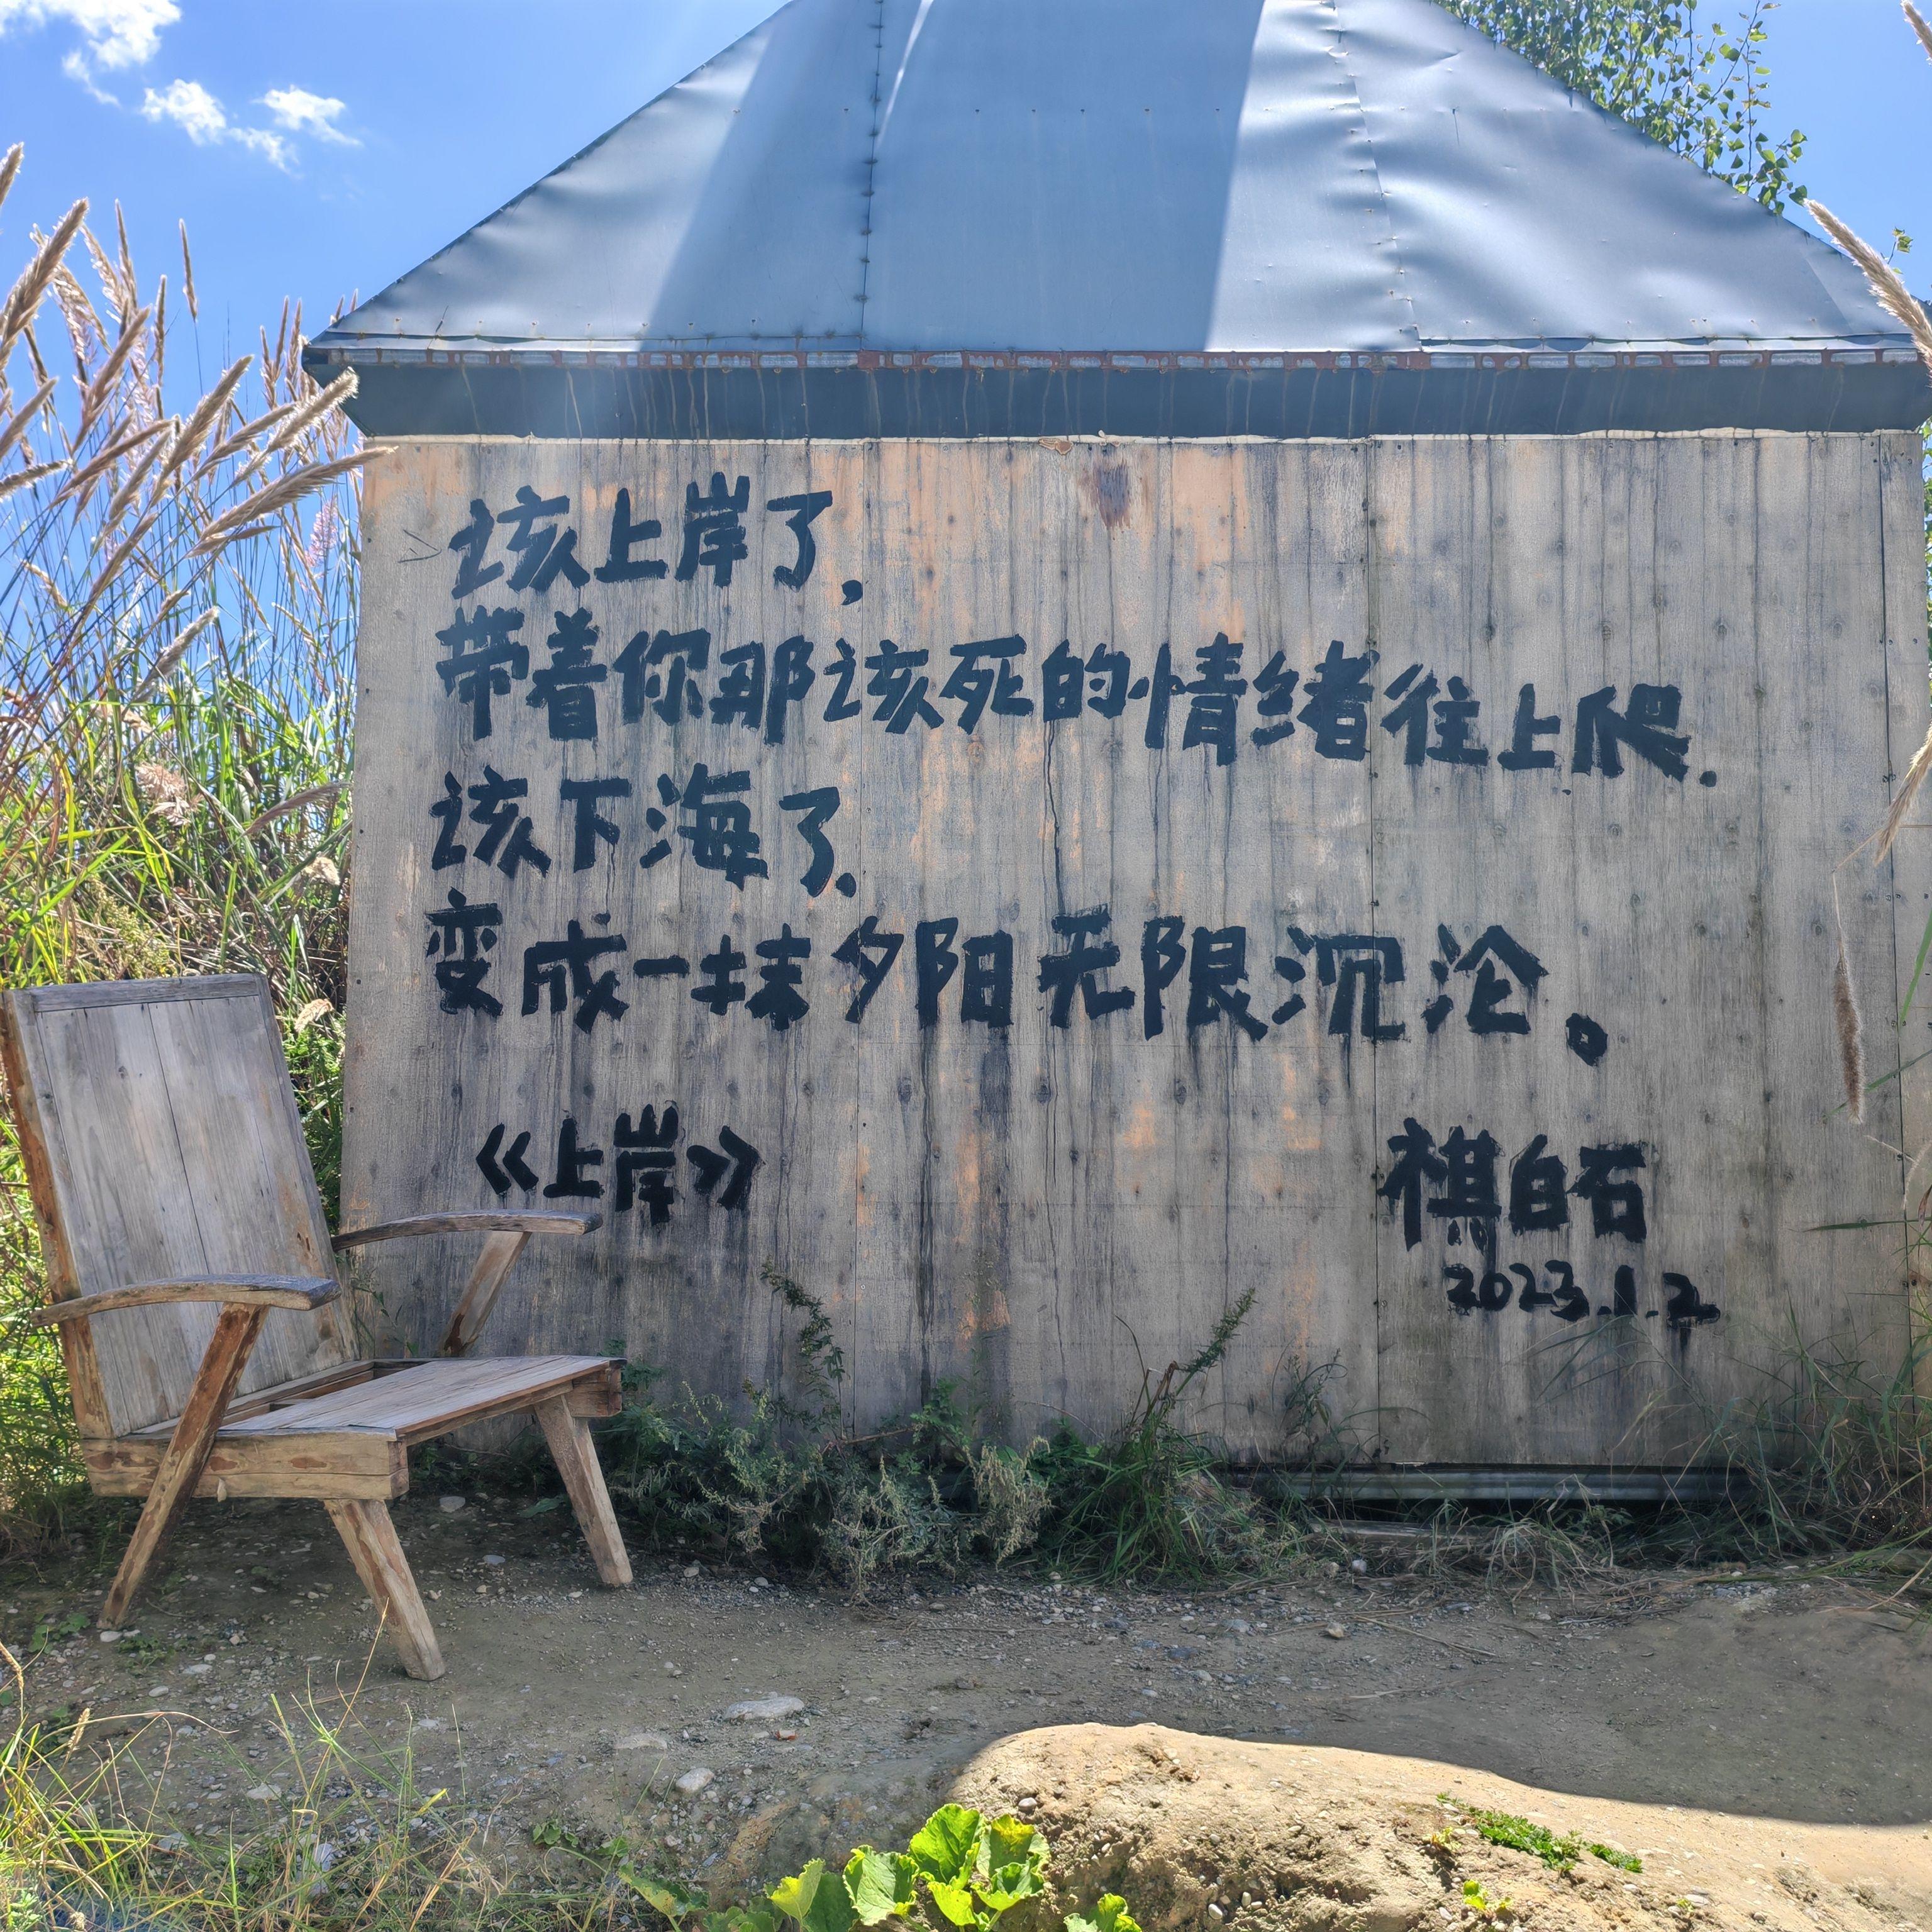 该上岸了,
带着你那该死的情绪往上爬.
该下海了.
变成一抹夕阳无限沉沦。
《上岸》
祺白石
2023.1.2